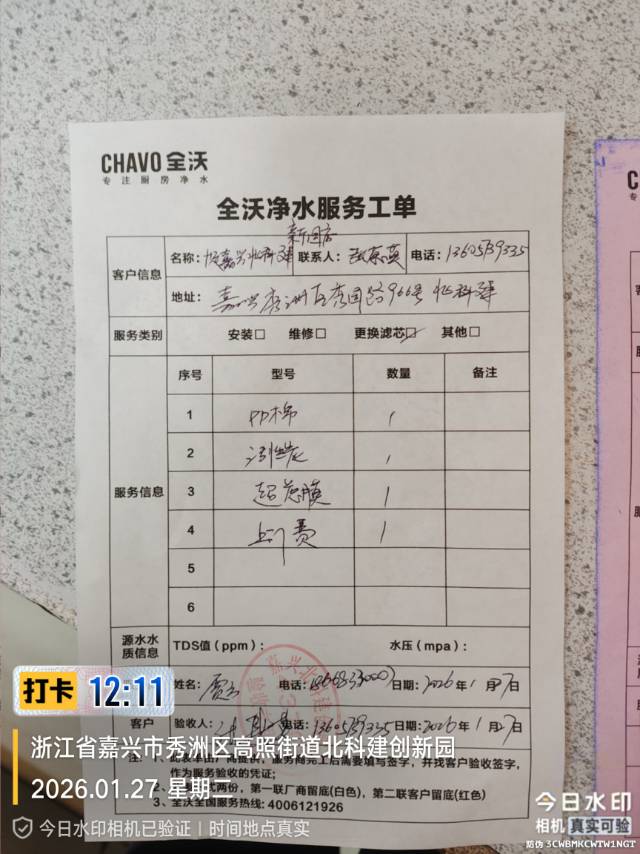 CHAVO 全沃
专注厨房净水
全沃净水服务工单
客户信息
名称：
联系人：
电话：13605739335
地址：嘉兴秀洲区秀园路966号北科建
服务类别
安装□ 维修□ 更换滤芯☑ 其他□
序号 型号 数量 备注
服务信息
1 PP棉 1
2 活性炭 1
3 超滤膜 1
4 上门费 1
5
6
源水水质信息
TDS值（ppm）： 水压（mpa）：
姓名： 电话： 日期：2026年1月27日
客户
验收人： 电话：13605739335 日期：2026年1月27日
注：1、此表单由厂商提供，服务商完工后需要填写签字，并找客户验收签字，
作为服务验收的凭证；
两份，第一联厂商留底(白色)，第二联客户留底(红色)
3、全沃全国服务热线：4006121926
打卡 12:11
浙江省嘉兴市秀洲区高照街道北科建创新园
2026.01.27 星期二
今日水印相机已验证 | 时间地点真实
今日水印
相机 真实可验
防伪 3CWBMKCWTW1NGT